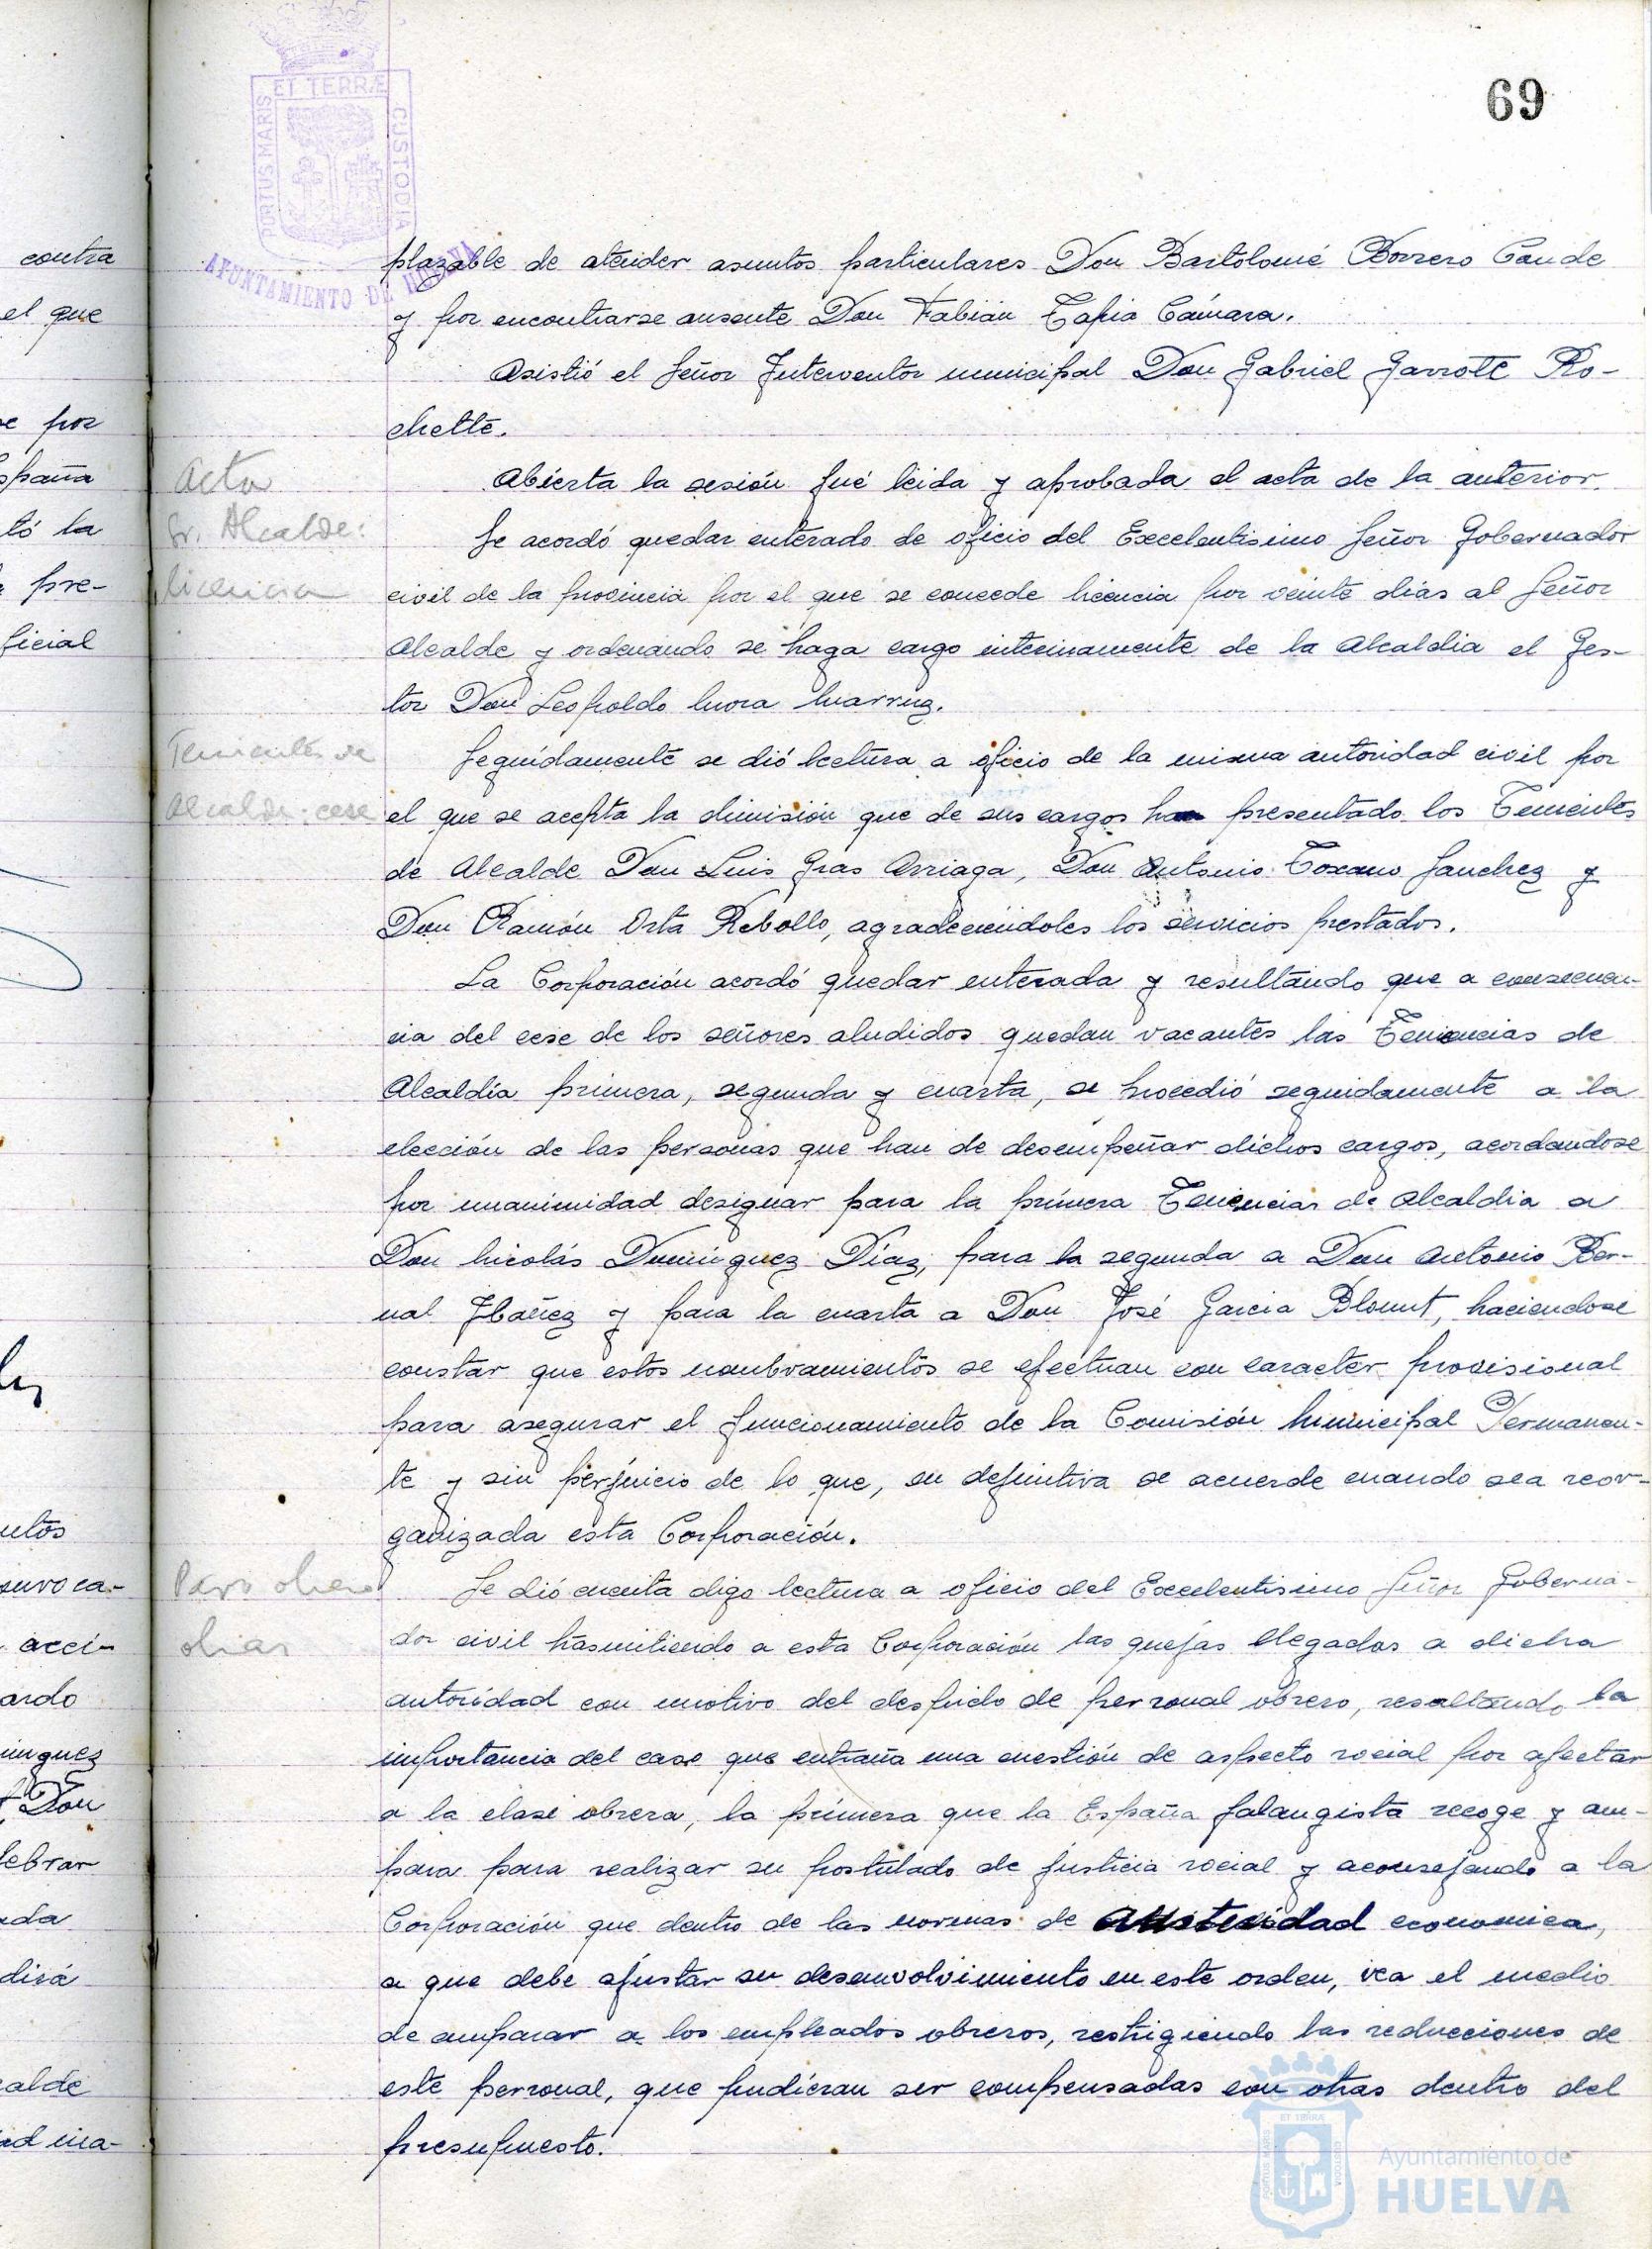 69
PORTUS MARIS
ET TERRÆ
CUSTODIA
AYUNTAMIENTO DE HUELVA
contra
el que
por
España
tó la
pre-
ficial
utos
nvoca-
acci-
ardo
inguez
Don
lebrar
ada
dirá
calde
plazable de atender asuntos particulares Don Bartolomé Borrero Conde
y por encontrarse ausente Don Fabián Tapia Cámara.
Asistió el Señor Interventor municipal Don Gabriel Garrote Ro-
chette.
Acta
Abierta la sesión fué leida y aprobada el acta de la anterior.
Sr. Alcalde:
licencia
Se acordó quedar enterado de oficio del Excelentisimo Señor Gobernador
civil de la provincia por el que se concede licencia por veinte dias al Señor
Alcalde y ordenando se haga cargo interinamente de la Alcaldia el Ges-
tor Don Leopoldo Mora Marruz.
Tenientes de
Alcalde: cese
Seguidamente se dió lectura a oficio de la misma autoridad civil por
el que se acepta la dimisión que de sus cargos han presentado los Tenientes
de Alcalde Don Luis Gras Arriaga, Don Antonio Toscano Sanchez y
Don Ramón Orta Rebollo, agradeciéndoles los servicios prestados.
La Corporación acordó quedar enterada y resultando que a consecuen-
cia del cese de los señores aludidos quedan vacantes las Tenencias de
Alcaldía primera, segunda y cuarta, se procedió seguidamente a la
elección de las personas que han de desempeñar dichos cargos, acordandose
por unanimidad designar para la primera Tenencias de Alcaldia a
Don Nicolás Dominguez Díaz, para la segunda a Don Antonio Ber-
nal Ibañez y para la cuarta a Don José Garcia Blount, haciendose
constar que estos nombramientos se efectuan con caracter provisional
para asegurar el funcionamiento de la Comisión Municipal Permanen-
te y sin perjuicio de lo que, en definitiva se acuerde cuando sea reor-
ganizada esta Corporación.
Paro obrero
Se dió cuenta digo lectura a oficio del Excelentisimo Señor Goberna-
dor civil trasmitiendo a esta Corporación las quejas llegadas a dicha
autoridad con motivo del despido de personal obrero, resaltando la
importancia del caso que entraña una cuestión de aspecto social por afectar
a la clase obrera, la primera que la España falangista recoge y am-
para para realizar su postulado de justicia social y aconsejando a la
Corporación que dentro de las normas de austeridad economica,
a que debe ajustar su desenvolvimiento en este orden, vea el medio
de amparar a los empleados obreros, restrigiendo las reducciones de
este personal, que pudieran ser compensadas con otras dentro del
presupuesto.
Ayuntamiento de
HUELVA